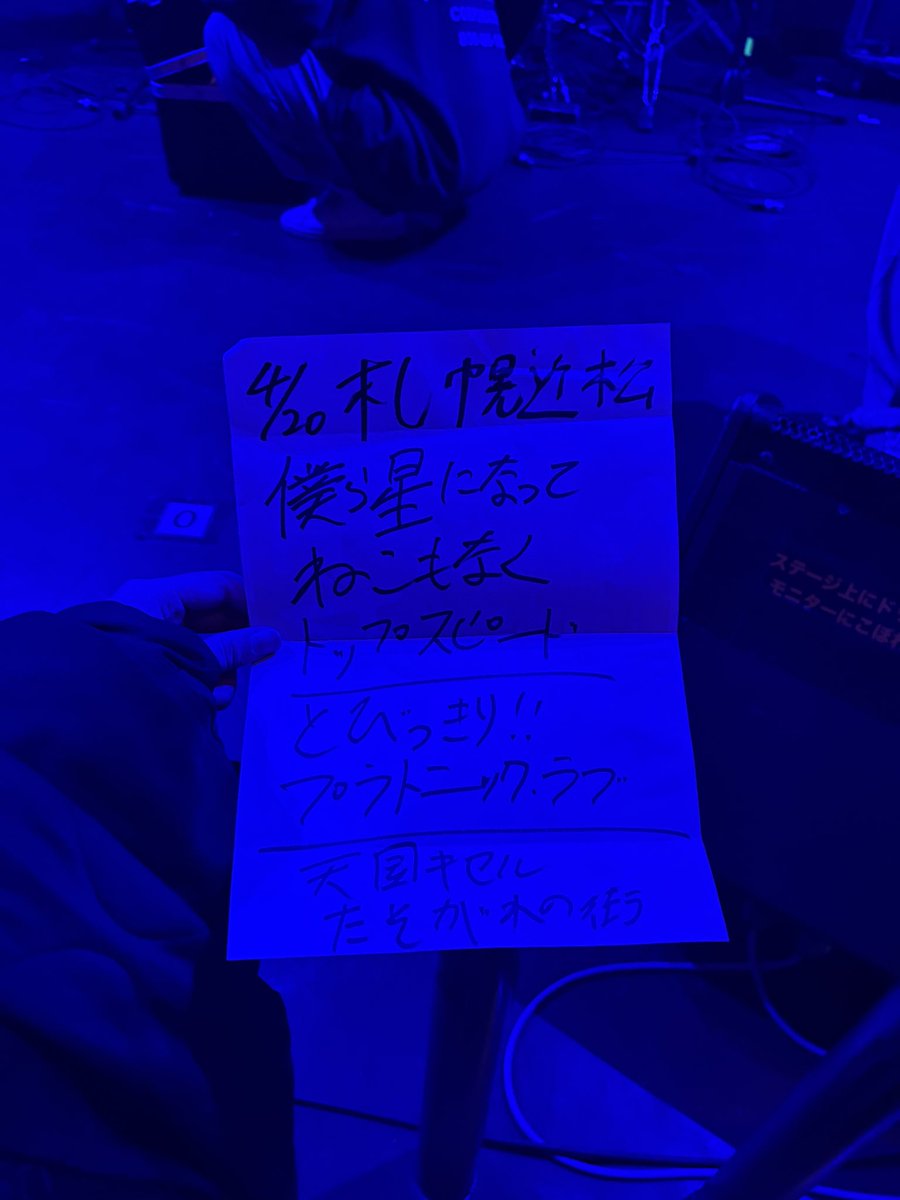 4/20 札幌近松
僕ら星になって
ねこもなく
トップスピード
とびっきり!!
プラトニック・ラブ
天国キセル
たそがれの街
ステージ上にド
モニターにこぼれ